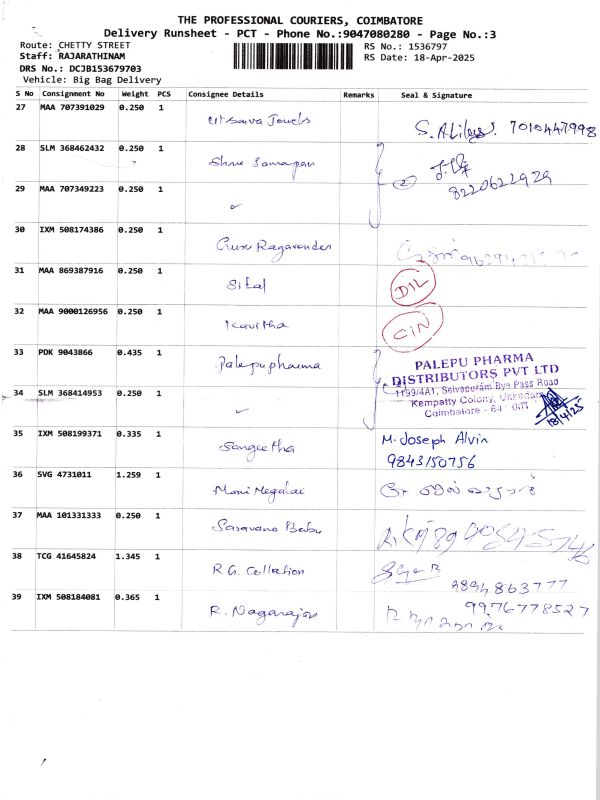 THE PROFESSIONAL COURIERS, COIMBATORE
Delivery Runsheet - PCT - Phone No.:9047080280 - Page No.:3
Route: CHETTY STREET
RS No.: 1536797
Staff: RAJARATHINAM
RS Date: 18-Apr-2025
DRS No.: DCJB153679703
Vehicle: Big Bag Delivery
S No Consignment No Weight PCS Consignee Details Remarks Seal & Signature
27 MAA 707391029 0.250 1 7010447998
28 SLM 368462432 0.250 1 Shree
(2) 8220622929
29 MAA 707349223 0.250 1 ✓
30 IXM 508174386 0.250 1 Guru Ragavender
31 MAA 869387916 0.250 1 Sital D/L
32 MAA 9000126956 0.250 1 Kavitha C/N
33 PDK 9043866 0.435 1 Palepu pharma
PALEPU PHARMA
DISTRIBUTORS PVT LTD
1199/4A1, Selvapuram Bye Pass Road
Kempatty Colony, Ukkadam
Coimbatore - 641 001
34 SLM 368414953 0.250 1 ✓ 18/4/25
35 IXM 508199371 0.335 1 Sangeetha M. Joseph Alvin
9843150756
36 SVG 4731011 1.259 1 Mani Megalai
37 MAA 101331333 0.250 1 Saravana Babu
38 TCG 41645824 1.345 1 R.G. Collation
9894863777
39 IXM 508184081 0.365 1 R. Nagarajan 9976778527